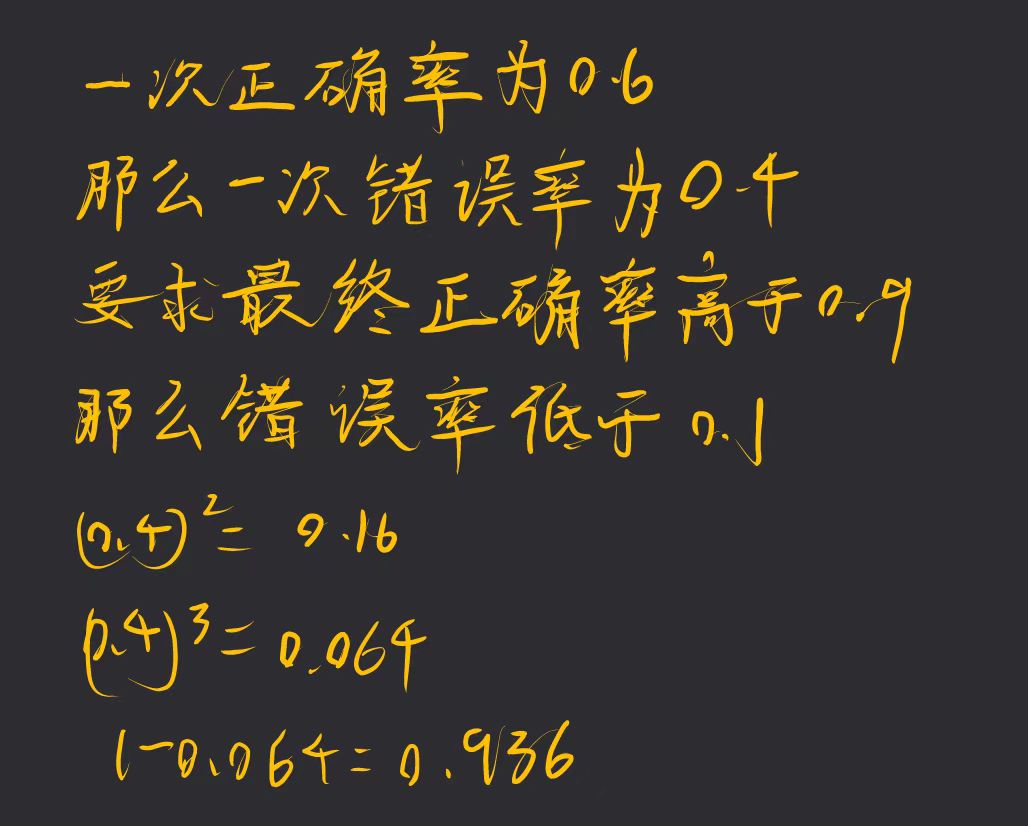 一次正确率为0.6
那么一次错误率为0.4
要求最终正确率高于0.9
那么错误率低于0.1
(0.4)²= 0.16
(0.4)³=0.064
1-0.064=0.936